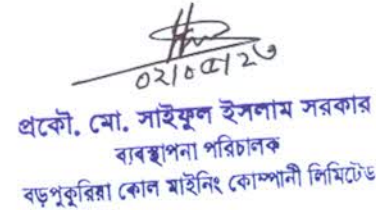 ০২/০৫/২৩
প্রকৌ. মো. সাইফুল ইসলাম সরকার
ব্যবস্থাপনা পরিচালক
বড়পুকুরিয়া কোল মাইনিং কোম্পানী লিমিটেড